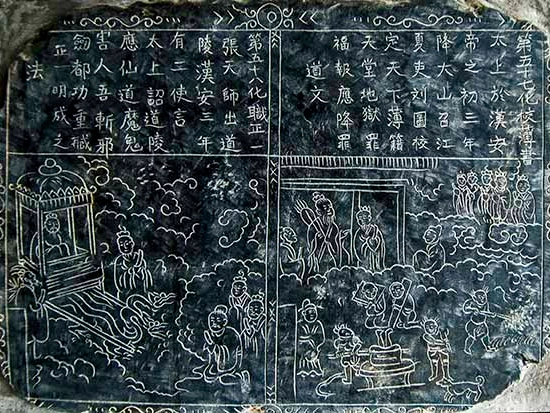 第五十七化校簿書
太上於漢安
帝之初三年
降大山召江
夏吏刘圖校
定天下薄籍
天堂地獄罪
福報應降罪
道文
第五十八化職正一
張天師出道
陵漢安三年
有三使言
太上詔道陵
應仙道魔鬼
害人吾斬邪
劍都功重職
正一明成之
法